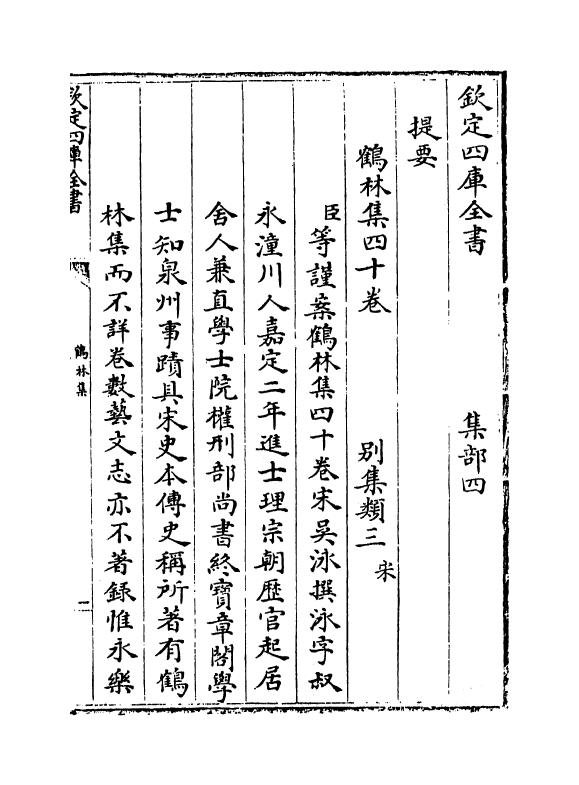 欽定四庫全書 集部四
提要
鶴林集四十卷 别集類三 宋
臣等謹案鶴林集四十卷宋吳泳撰泳字叔
永潼川人嘉定二年進士理宗朝歴官起居
舍人兼直學士院權刑部尚書終寶章閣學
士知泉州事蹟具宋史本傳史稱所著有鶴
林集而不詳卷數藝文志亦不著録惟永樂
欽定四庫全書 鶴林集 一